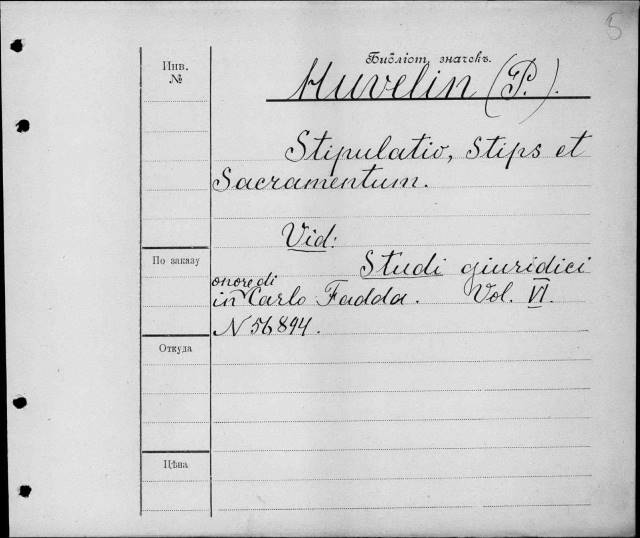 5
Библіот. значекъ.
Инв.
№
Huvelin (P.).
Stipulatio, Stips et
Sacramentum.
Vid:
По заказу
Studi giuridici
onore di
in Carlo Fadda. Vol. VI.
N 56894.
Откуда
Цѣна